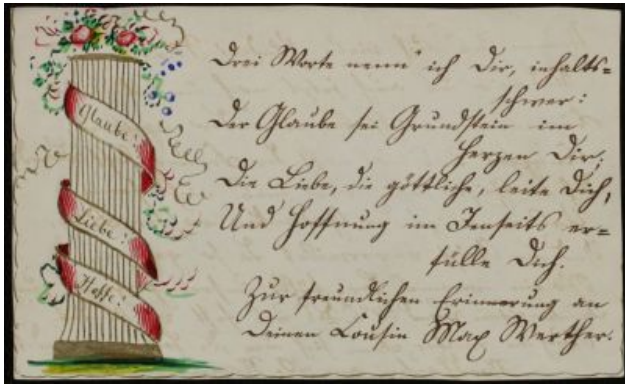 Glaube!
Liebe!
Hoffe!
Drei Worte nenn' ich Dir, inhalts=
schwer:
Der Glaube sei Grundstein im
Herzen Dir;
Die Liebe, die göttliche, leite Dich,
Und Hoffnung im Jenseits er=
fülle Dich.
Zur freundlichen Erinnerung an
Deinen Cousin Max Werther.